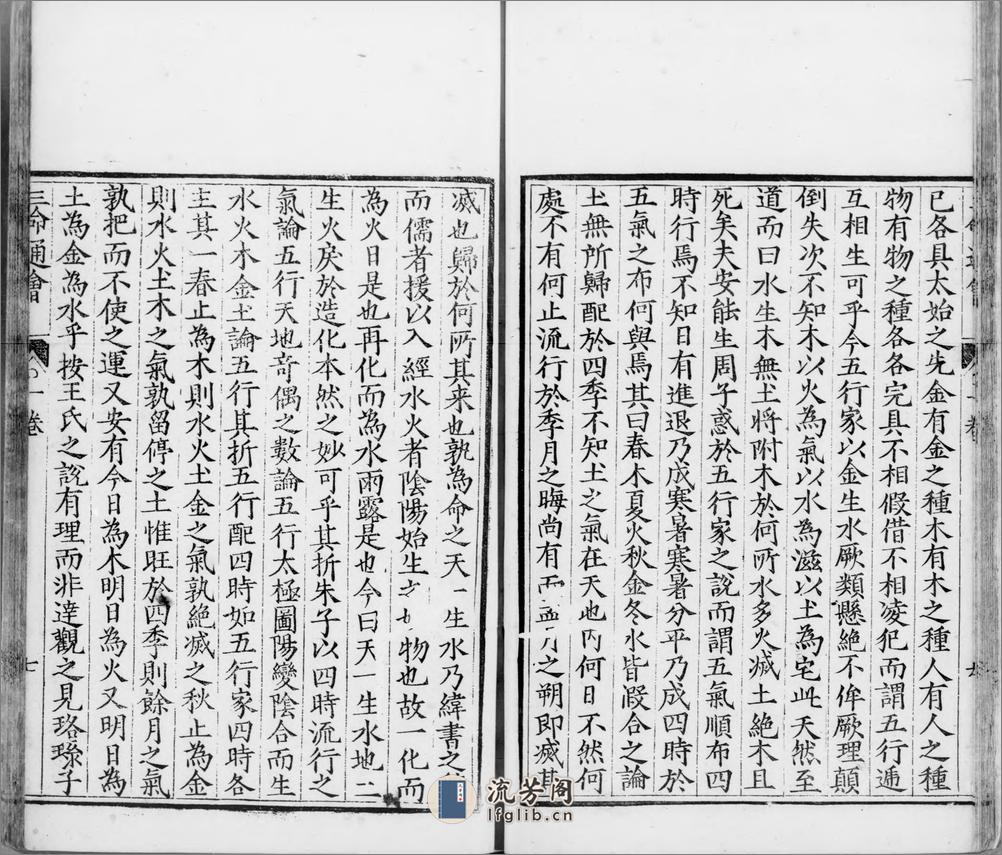 已各具太始之先金有金之種木有木之種人有人之種
物有物之種各各完具不相假借不相凌犯而謂五行逓
互相生可乎今五行家以金生水厥類懸絶不侔厥理顛
倒失次不知木以火為氣以水為滋以土為宅此天然至
道而曰水生木無土將附木於何所水多火滅土絶木且
死矣夫安能生周子惑於五行家之說而謂五氣順布四
時行焉不知日有進退乃成寒暑寒暑分平乃成四時於
五氣之布何與焉其曰春木夏火秋金冬水皆假合之論
土無所歸配於四季不知土之氣在天地内何日不然何
處不有何止流行於季月之晦尚有而孟月之朔即滅其
滅也歸於何所其来也孰為命之天一生水乃緯書之
而儒者援以入經水火者隂陽始生之 物也故一化而
為火日是也再化而為水雨露是也今曰天一生水地二
生火戾於造化本然之妙可乎其折朱子以四時流行之
氣論五行天地竒偶之數論五行太極圖陽變隂合而生
水火木金土論五行其折五行配四時如五行家四時各
主其一春止為木則水火土金之氣孰絶滅之秋止為金
則水火土木之氣孰留停之土惟旺於四季則餘月之氣
孰把而不使之運又安有今日為木明日為火又明日為
土為金為水乎按王氏之說有理而非達觀之見珞琭子
三命通會
一卷
七
流芳阁
lfglib.cn